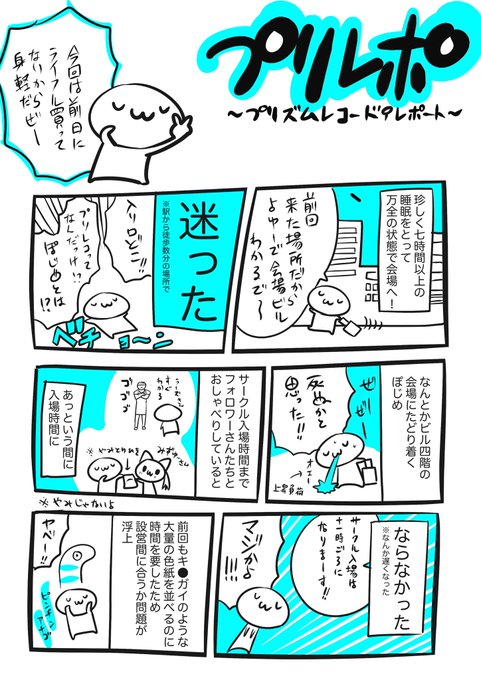 プリレポ
～プリズムレコードアレポート～
今回は前日に
ライフル買って
ないから
身軽だぜー
珍しく七時間以上の
睡眠をとって
万全の状態で会場へ！
前回
来た場所だから
よゆーで会場ビル
わかるで〜
迷った
※駅から徒歩数分の場所で
入り口どこ!!
プリレコって
なんだっけ!?
ぽじめとは!?
ベチョ〜ン
なんとかビル四階の
会場にたどり着く
ぽじめ
ぜぇぜぇ
死ぬかと
思った!!
オエー
サークル入場時間まで
フォロワーさんたちと
おしゃべりしていると
すぐ
わかる
ゴゴゴ
あっという間に
入場時間に
※やみじゃないよ
ならなかった
※なんか遅くなった
サークル入場は
十一時ごろに
なりまーす！
マジかよ
!!!!
前回もキ●ガイのような
大量の色紙を並べるのに
時間を要したため
設営間に合うか問題が
浮上
ヤベー!!
ピンチン
アナゴ